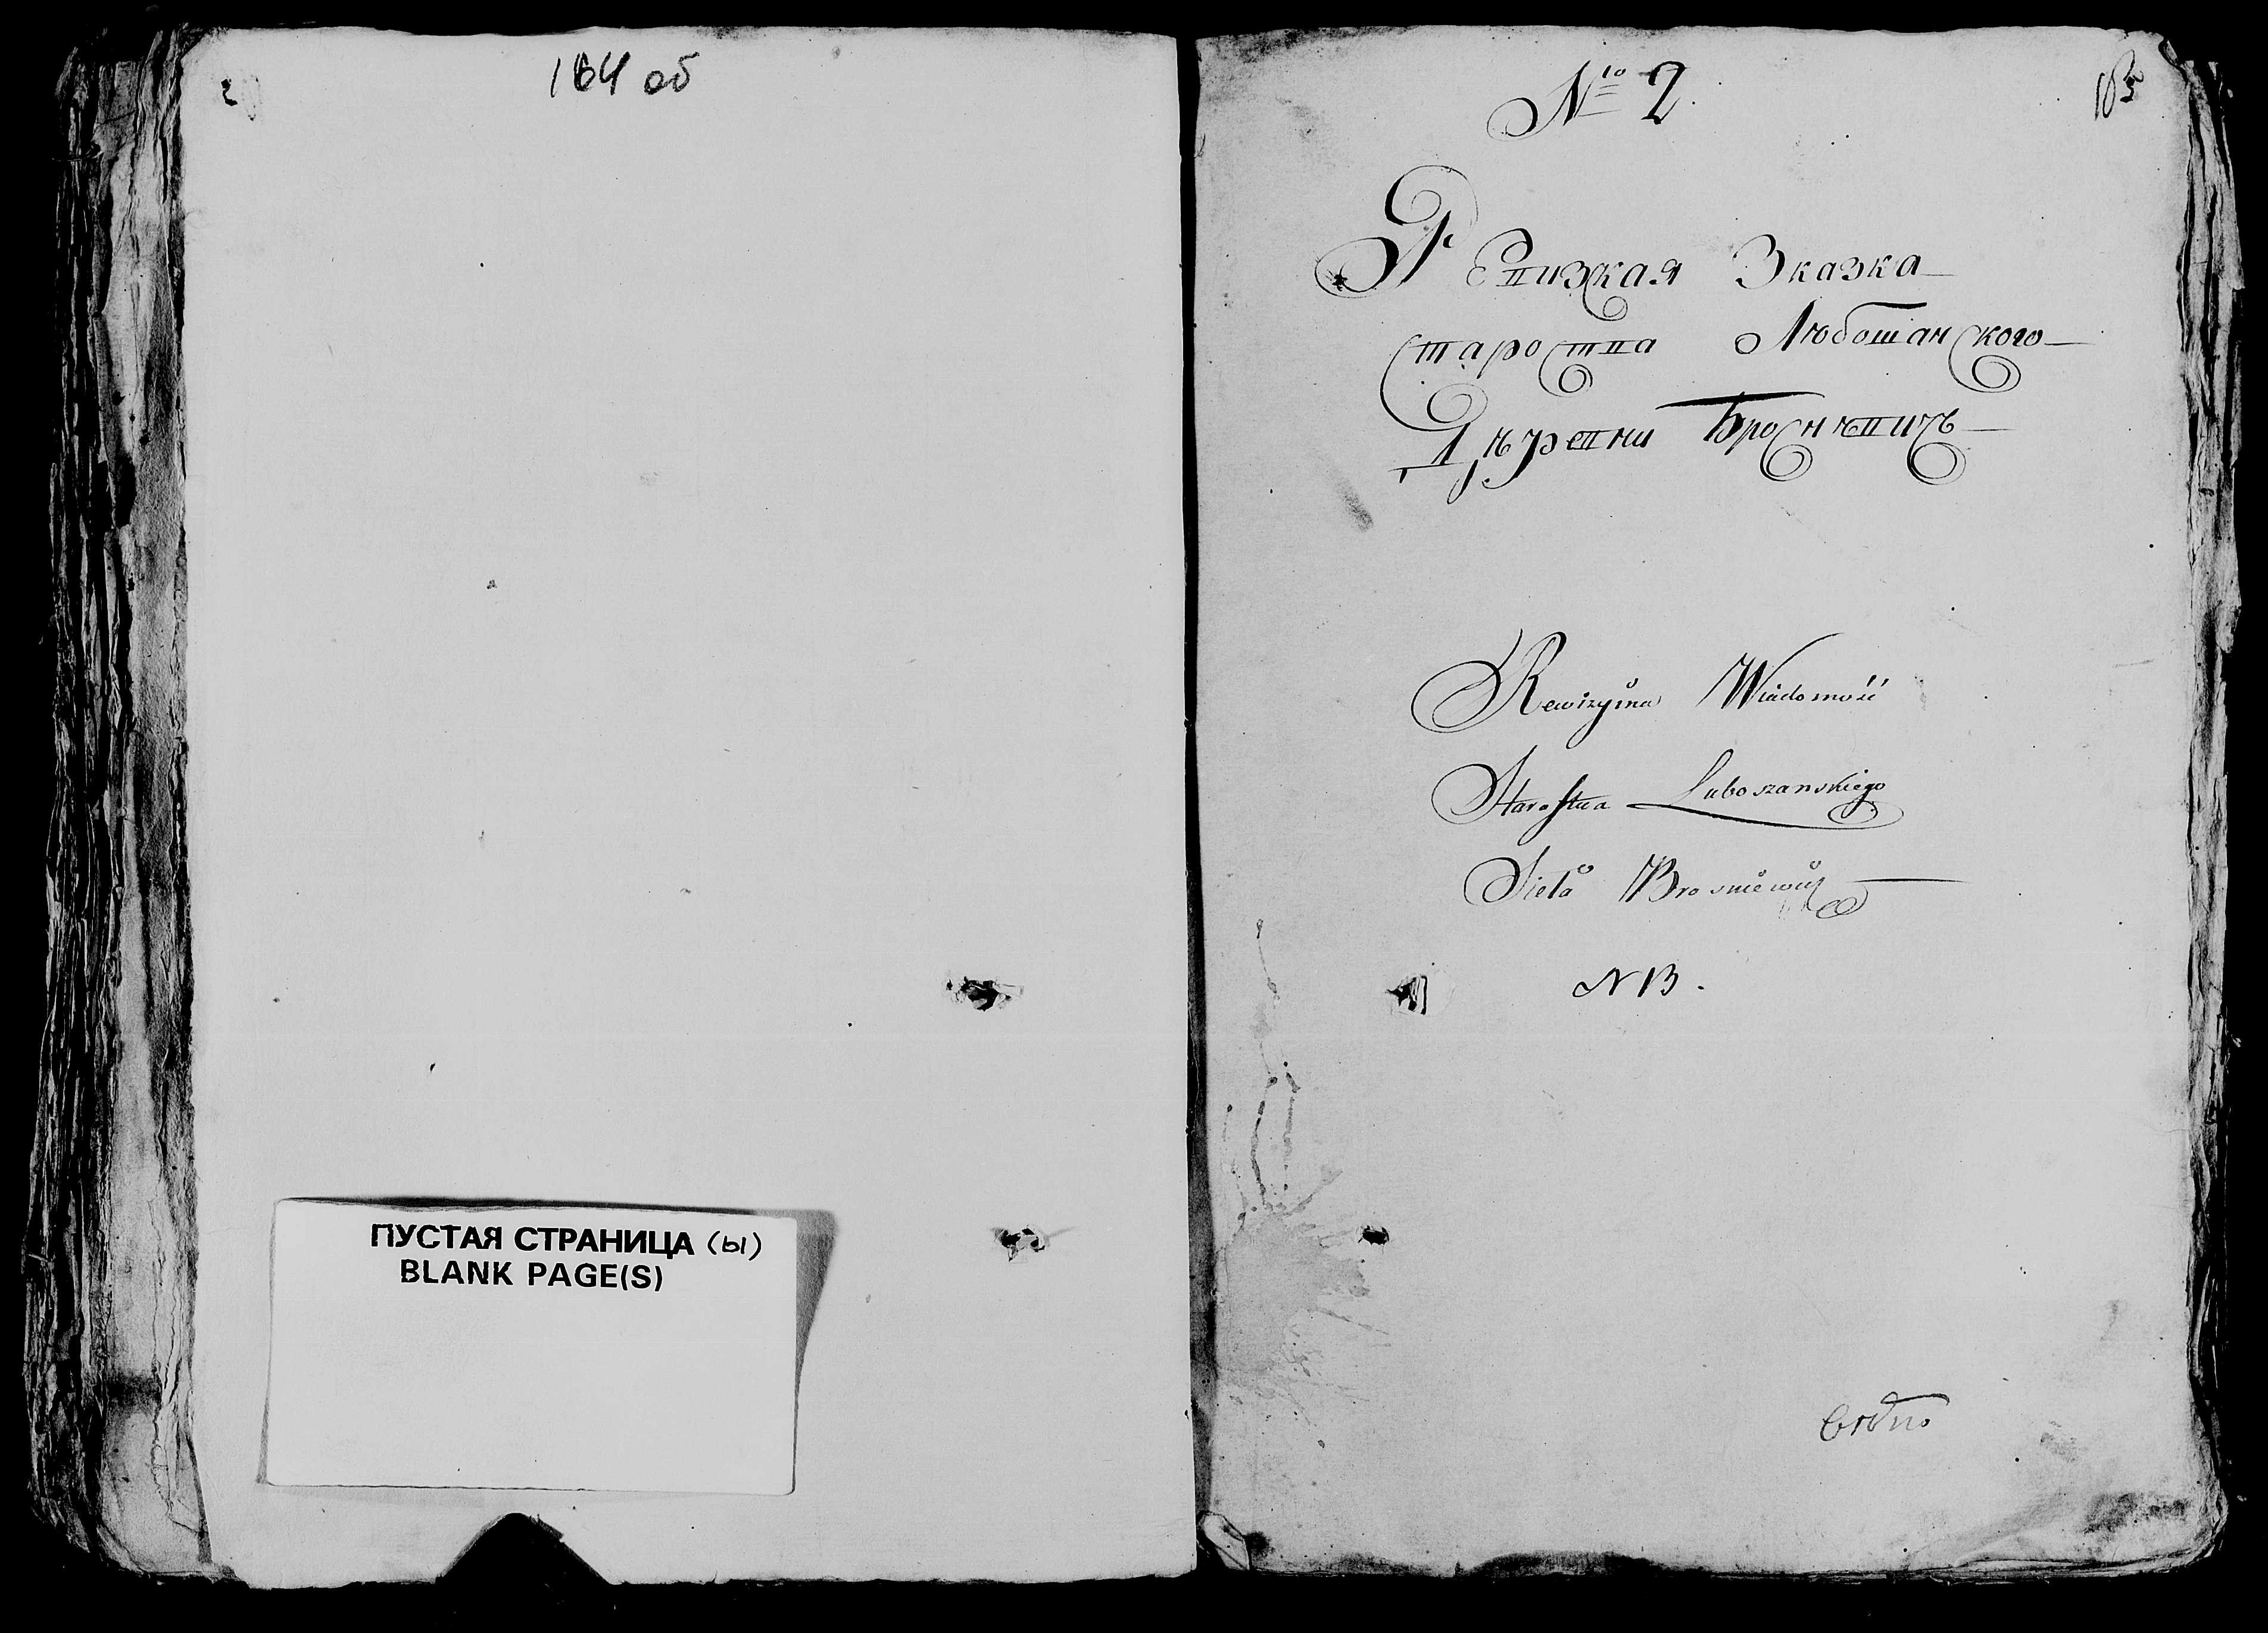 164 об
ПУСТАЯ СТРАНИЦА (ы)
BLANK PAGE(S)
№ 2.
165
Ревизкая Зказка
староства Любошанского
Дѣревни Броснѣвичъ
Rewizyina Wiadomość
Starostwa Luboszanskiego
Sieła Brosniewicz
NB.